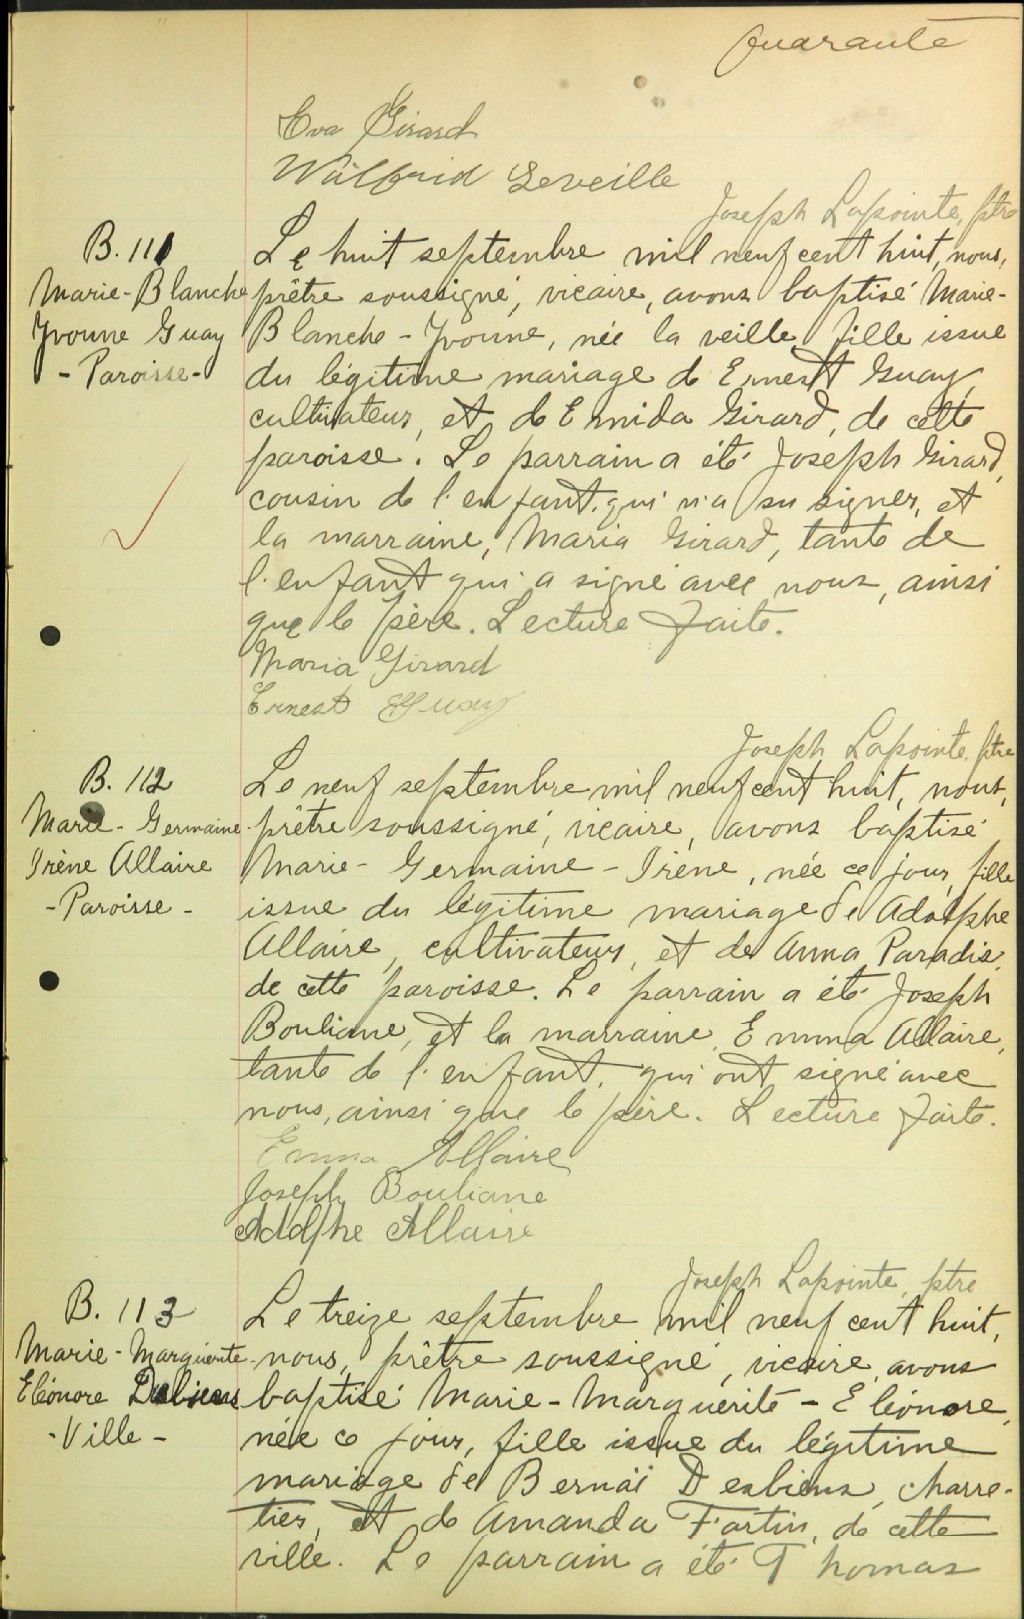 quarante
Eva Girard
Wilfrid Leveille
Joseph Lapointe, ptre
B. 111
Marie-Blanche
Yvonne Guay
- Paroisse -
Le huit septembre mil neuf cent huit, nous,
prêtre soussigné, vicaire, avons baptisé Marie-
Blanche-Yvonne, née la veille, fille issue
du légitime mariage de Ernest Guay,
cultivateur, et de Ermida Girard, de cette
paroisse. Le parrain a été Joseph Girard,
cousin de l'enfant, qui n'a su signer, et
la marraine, Maria Girard, tante de
l'enfant qui a signé avec nous, ainsi
que le père. Lecture faite.
Maria Girard
Ernest Guay
Joseph Lapointe, ptre
B. 112
Marie-Germaine-
Irène Allaire
- Paroisse -
Le neuf septembre mil neuf cent huit, nous,
prêtre soussigné, vicaire, avons baptisé
Marie-Germaine-Irène, née ce jour, fille
issue du légitime mariage de Adolphe
Allaire, cultivateur, et de Anna Paradis,
de cette paroisse. Le parrain a été Joseph
Bouliane, et la marraine, Emma Allaire,
tante de l'enfant, qui ont signé avec
nous, ainsi que le père. Lecture faite.
Emma Allaire
Joseph Bouliane
Adolphe Allaire
Joseph Lapointe, ptre
B. 113
Marie-Marguerite-
Eléonore Desbiens
- Ville -
Le treize septembre mil neuf cent huit,
nous, prêtre soussigné, vicaire, avons
baptisé Marie-Marguerite-Eléonore,
née ce jour, fille issue du légitime
mariage de Bernaï Desbiens, charre-
tier, et de Amanda Fortin, de cette
ville. Le parrain a été Thomas